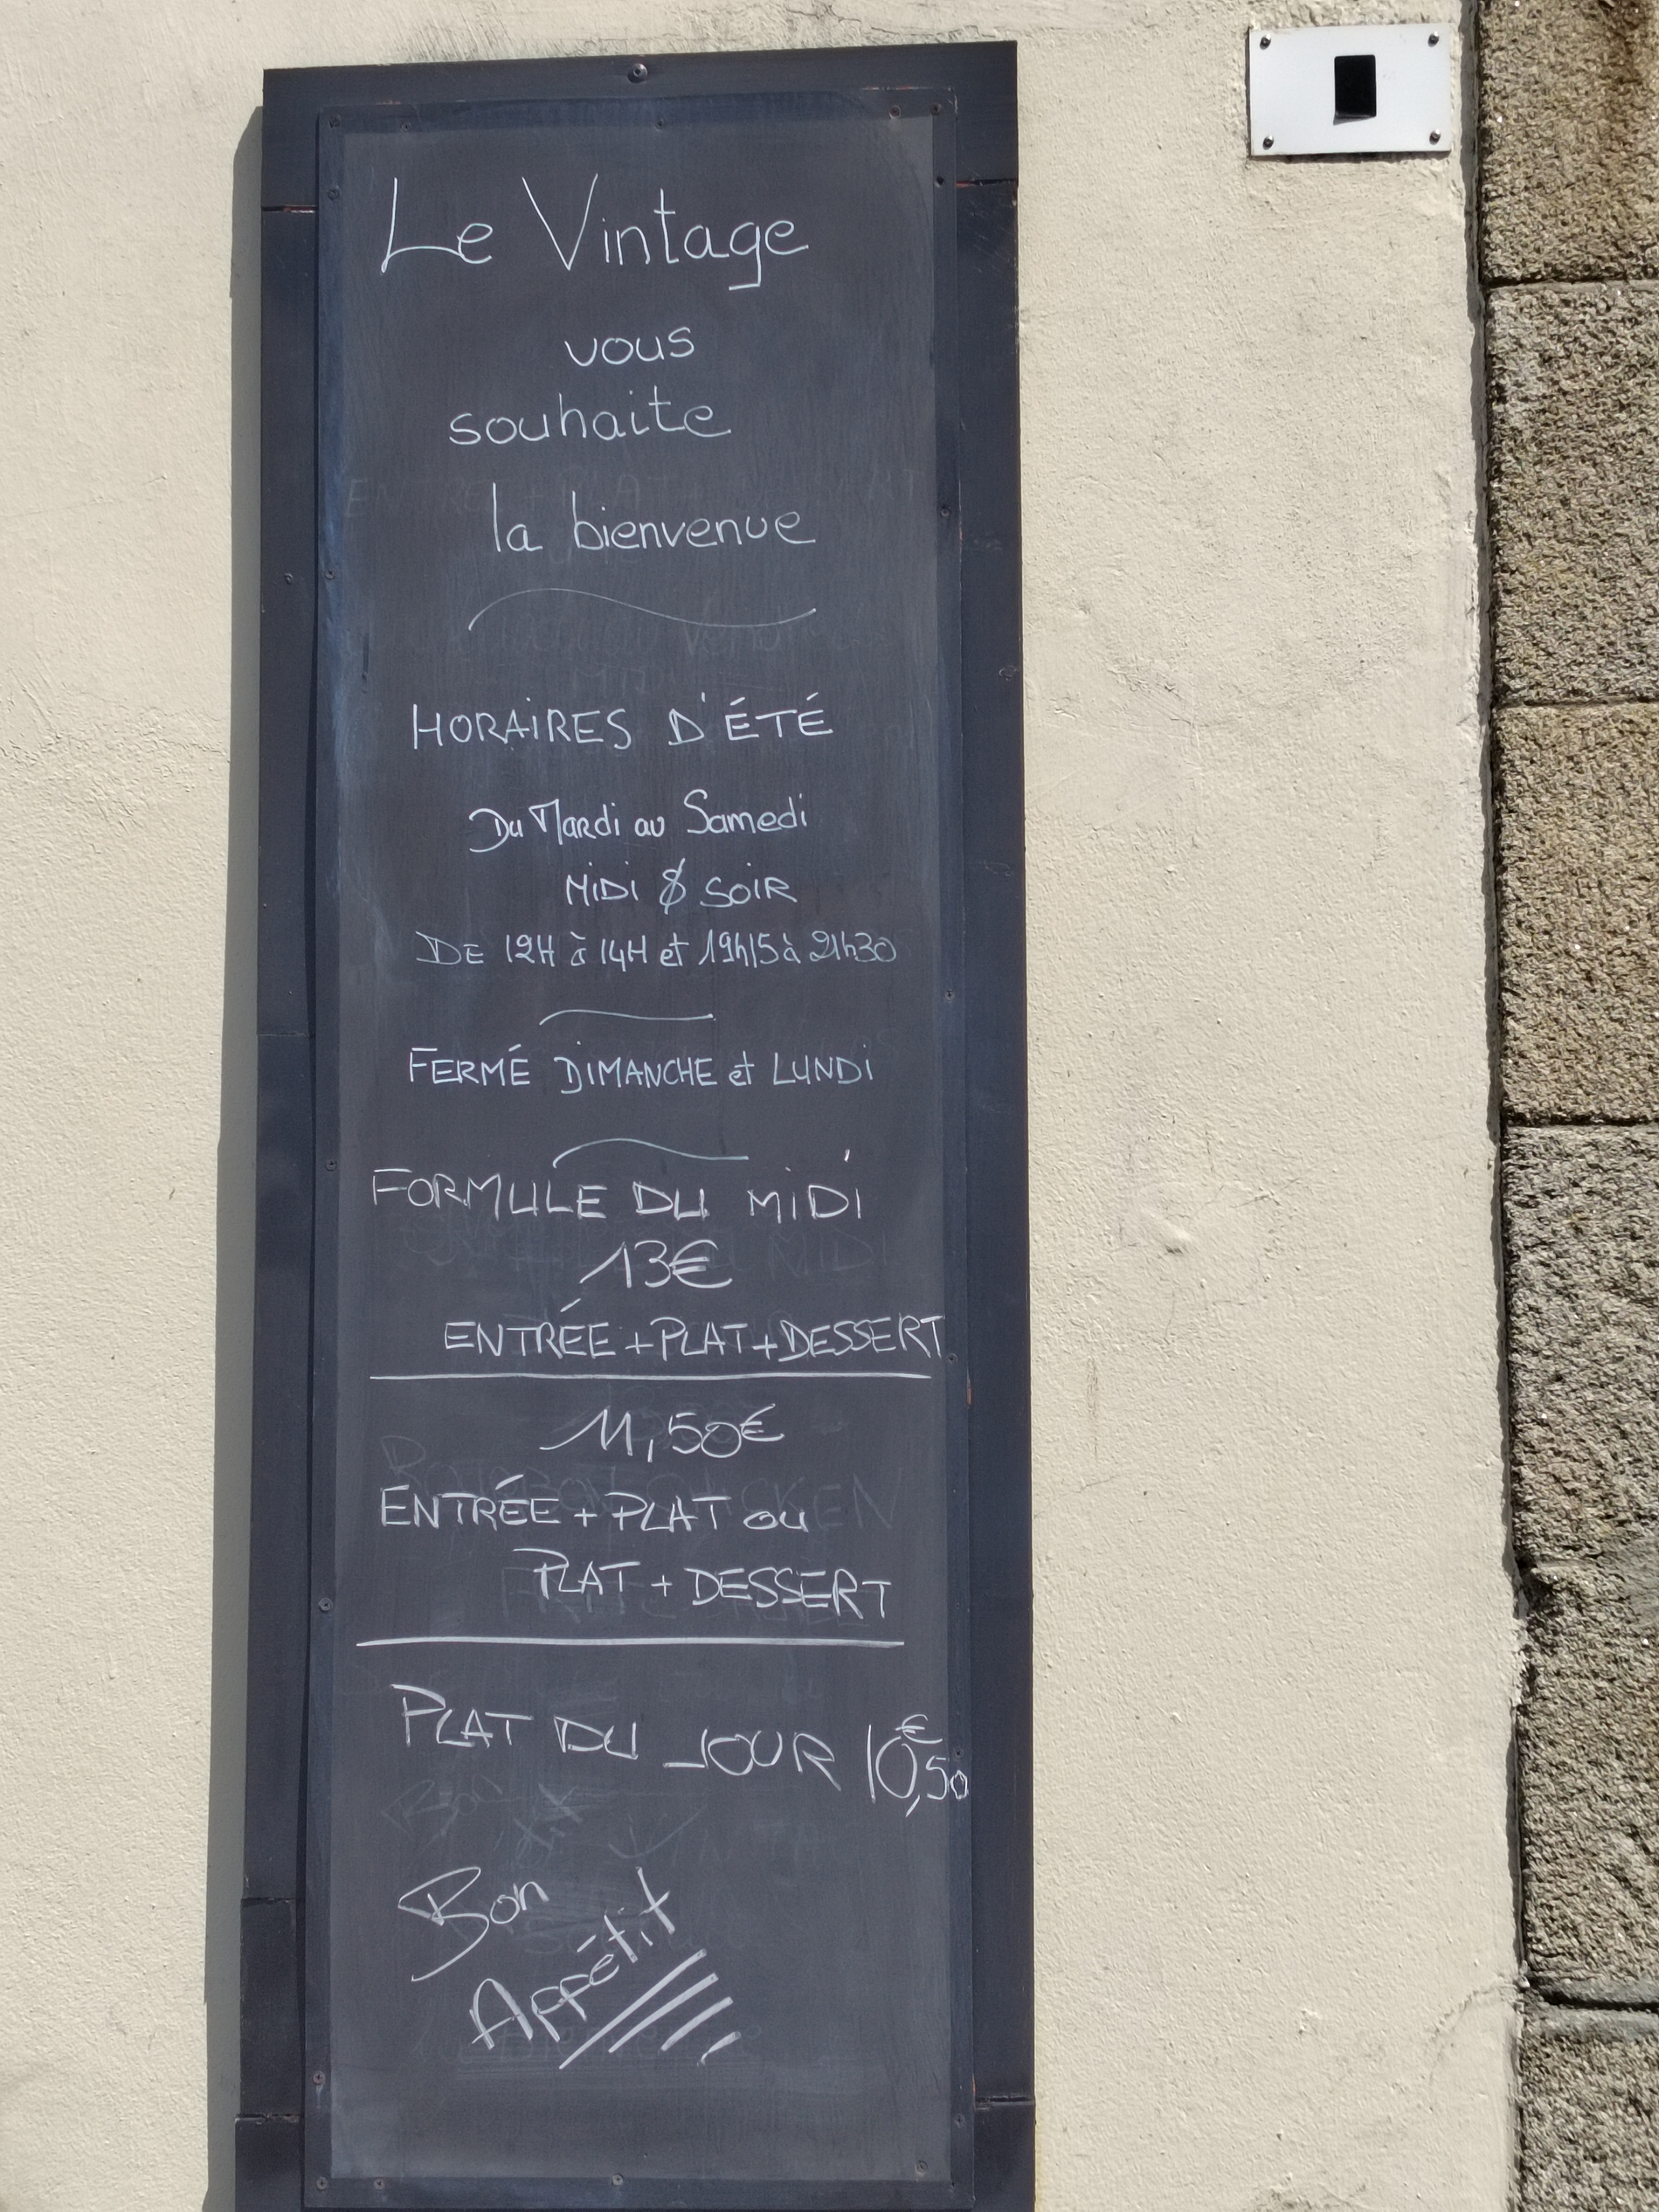 Le Vintage
vous
souhaite
la bienvenue
HORAIRES D'ÉTÉ
Du Mardi au Samedi
MIDI & SOIR
DE 12H à 14H et 19h15 à 21h30
FERMÉ DIMANCHE et LUNDI
FORMULE DU MIDI
13€
ENTRÉE + PLAT + DESSERT
11,50€
ENTRÉE + PLAT ou
PLAT + DESSERT
PLAT DU JOUR 10,50€
Bon
Appétit